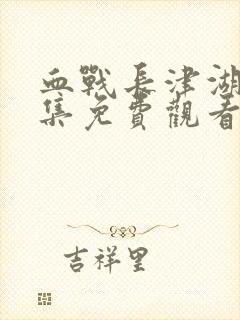 血戰長津湖
集免費觀看
吉祥里